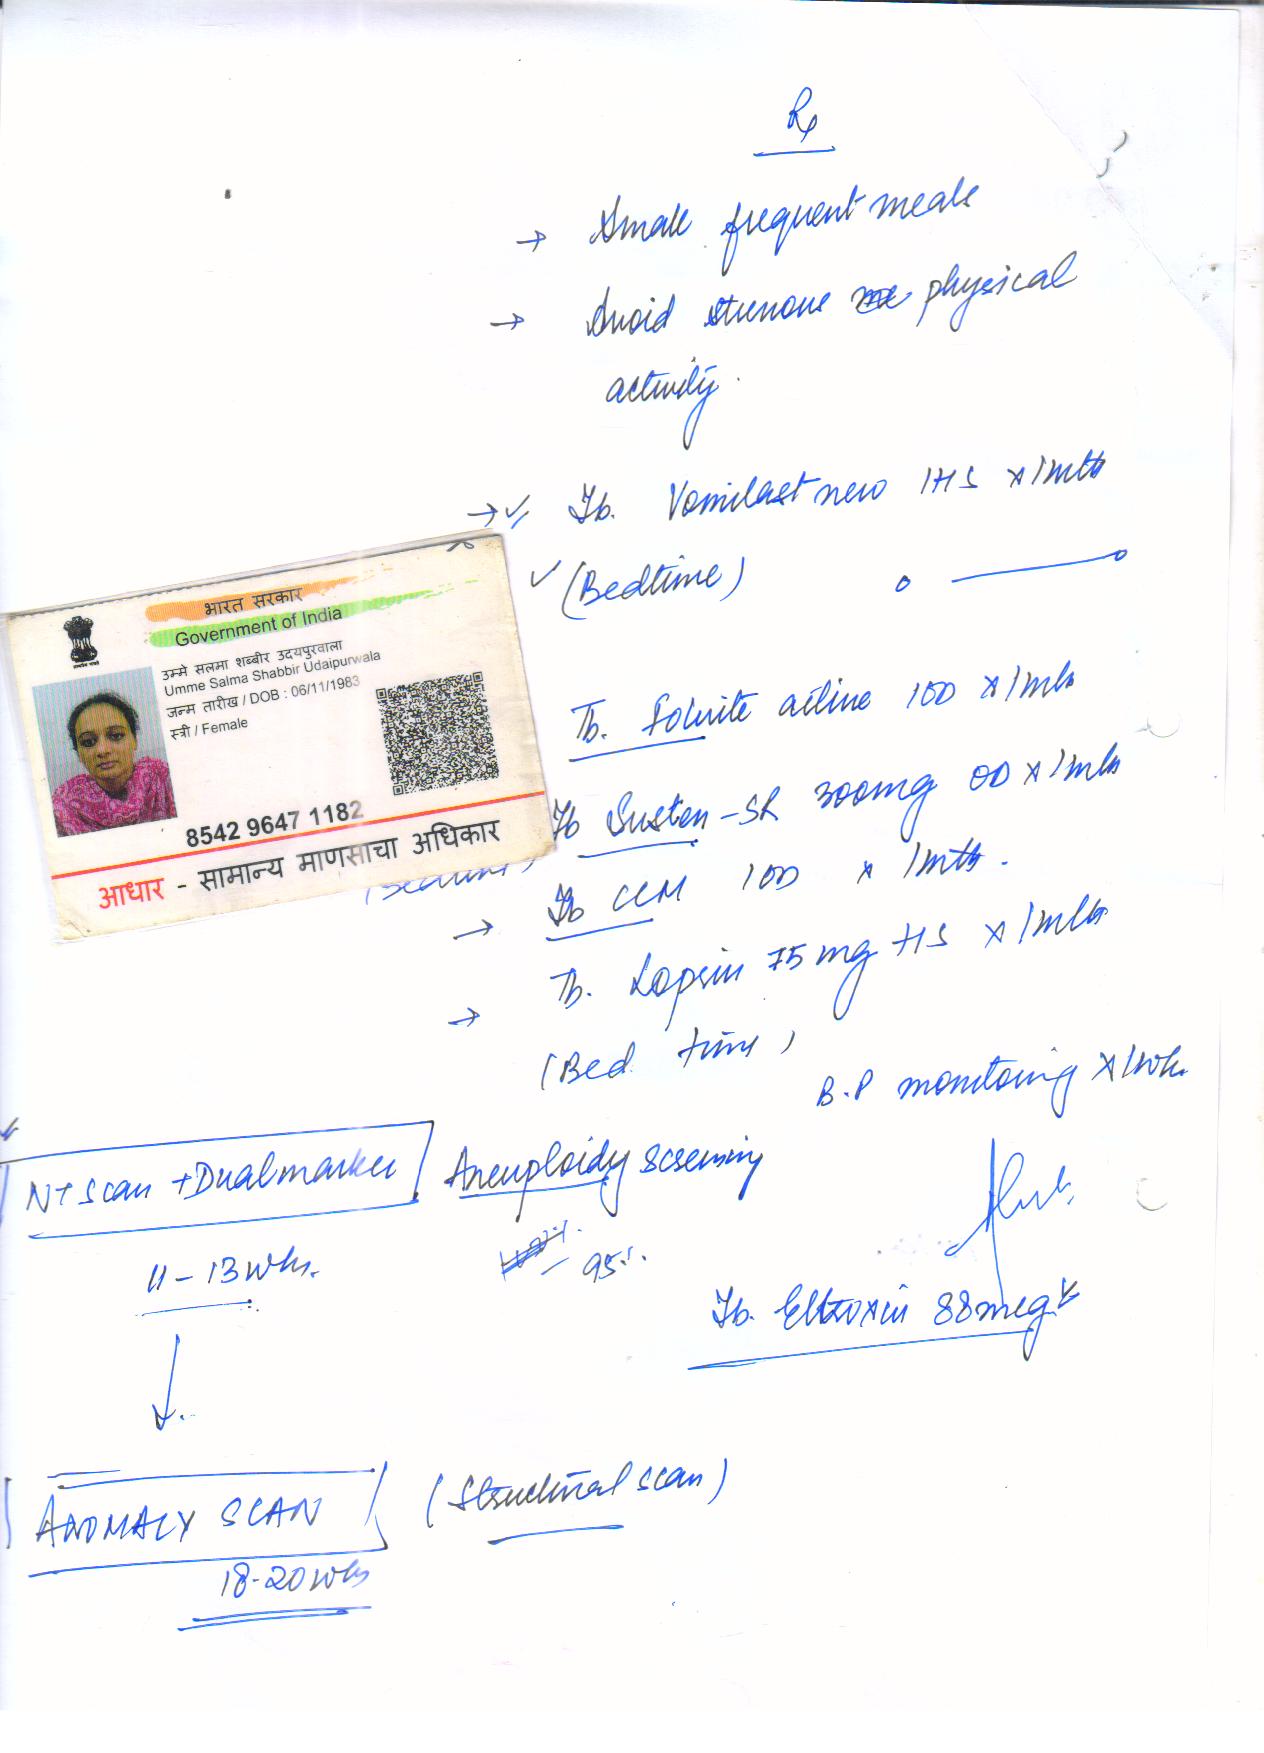 Rx
→ Small frequent meals
→ Avoid strenous physical
activity.
→ ✓ Tb. Vomilast new 1HS x 1mth
✓ (Bedtime)
भारत सरकार
Government of India
उम्मे सलमा शब्बीर उदयपुरवाला
Umme Salma Shabbir Udaipurwala
जन्म तारीख / DOB : 06/11/1983
स्त्री / Female
8542 9647 1182
आधार - सामान्य माणसाचा अधिकार
Tb. Folvite active 1OD x 1mth
Tb Susten-SR 300mg OD x 1mth
→ Tb CCM 1OD x 1mth.
→ Tb. Lopsin 75mg HS x 1mth
(Bed time)
B.P monitoring x 1wk.
NT Scan + Dual marker Aneuploidy screening
11-13 wks. - 95%.
Tb. Eltroxin 88mcg
ANOMALY SCAN (Structural scan)
18-20 wks